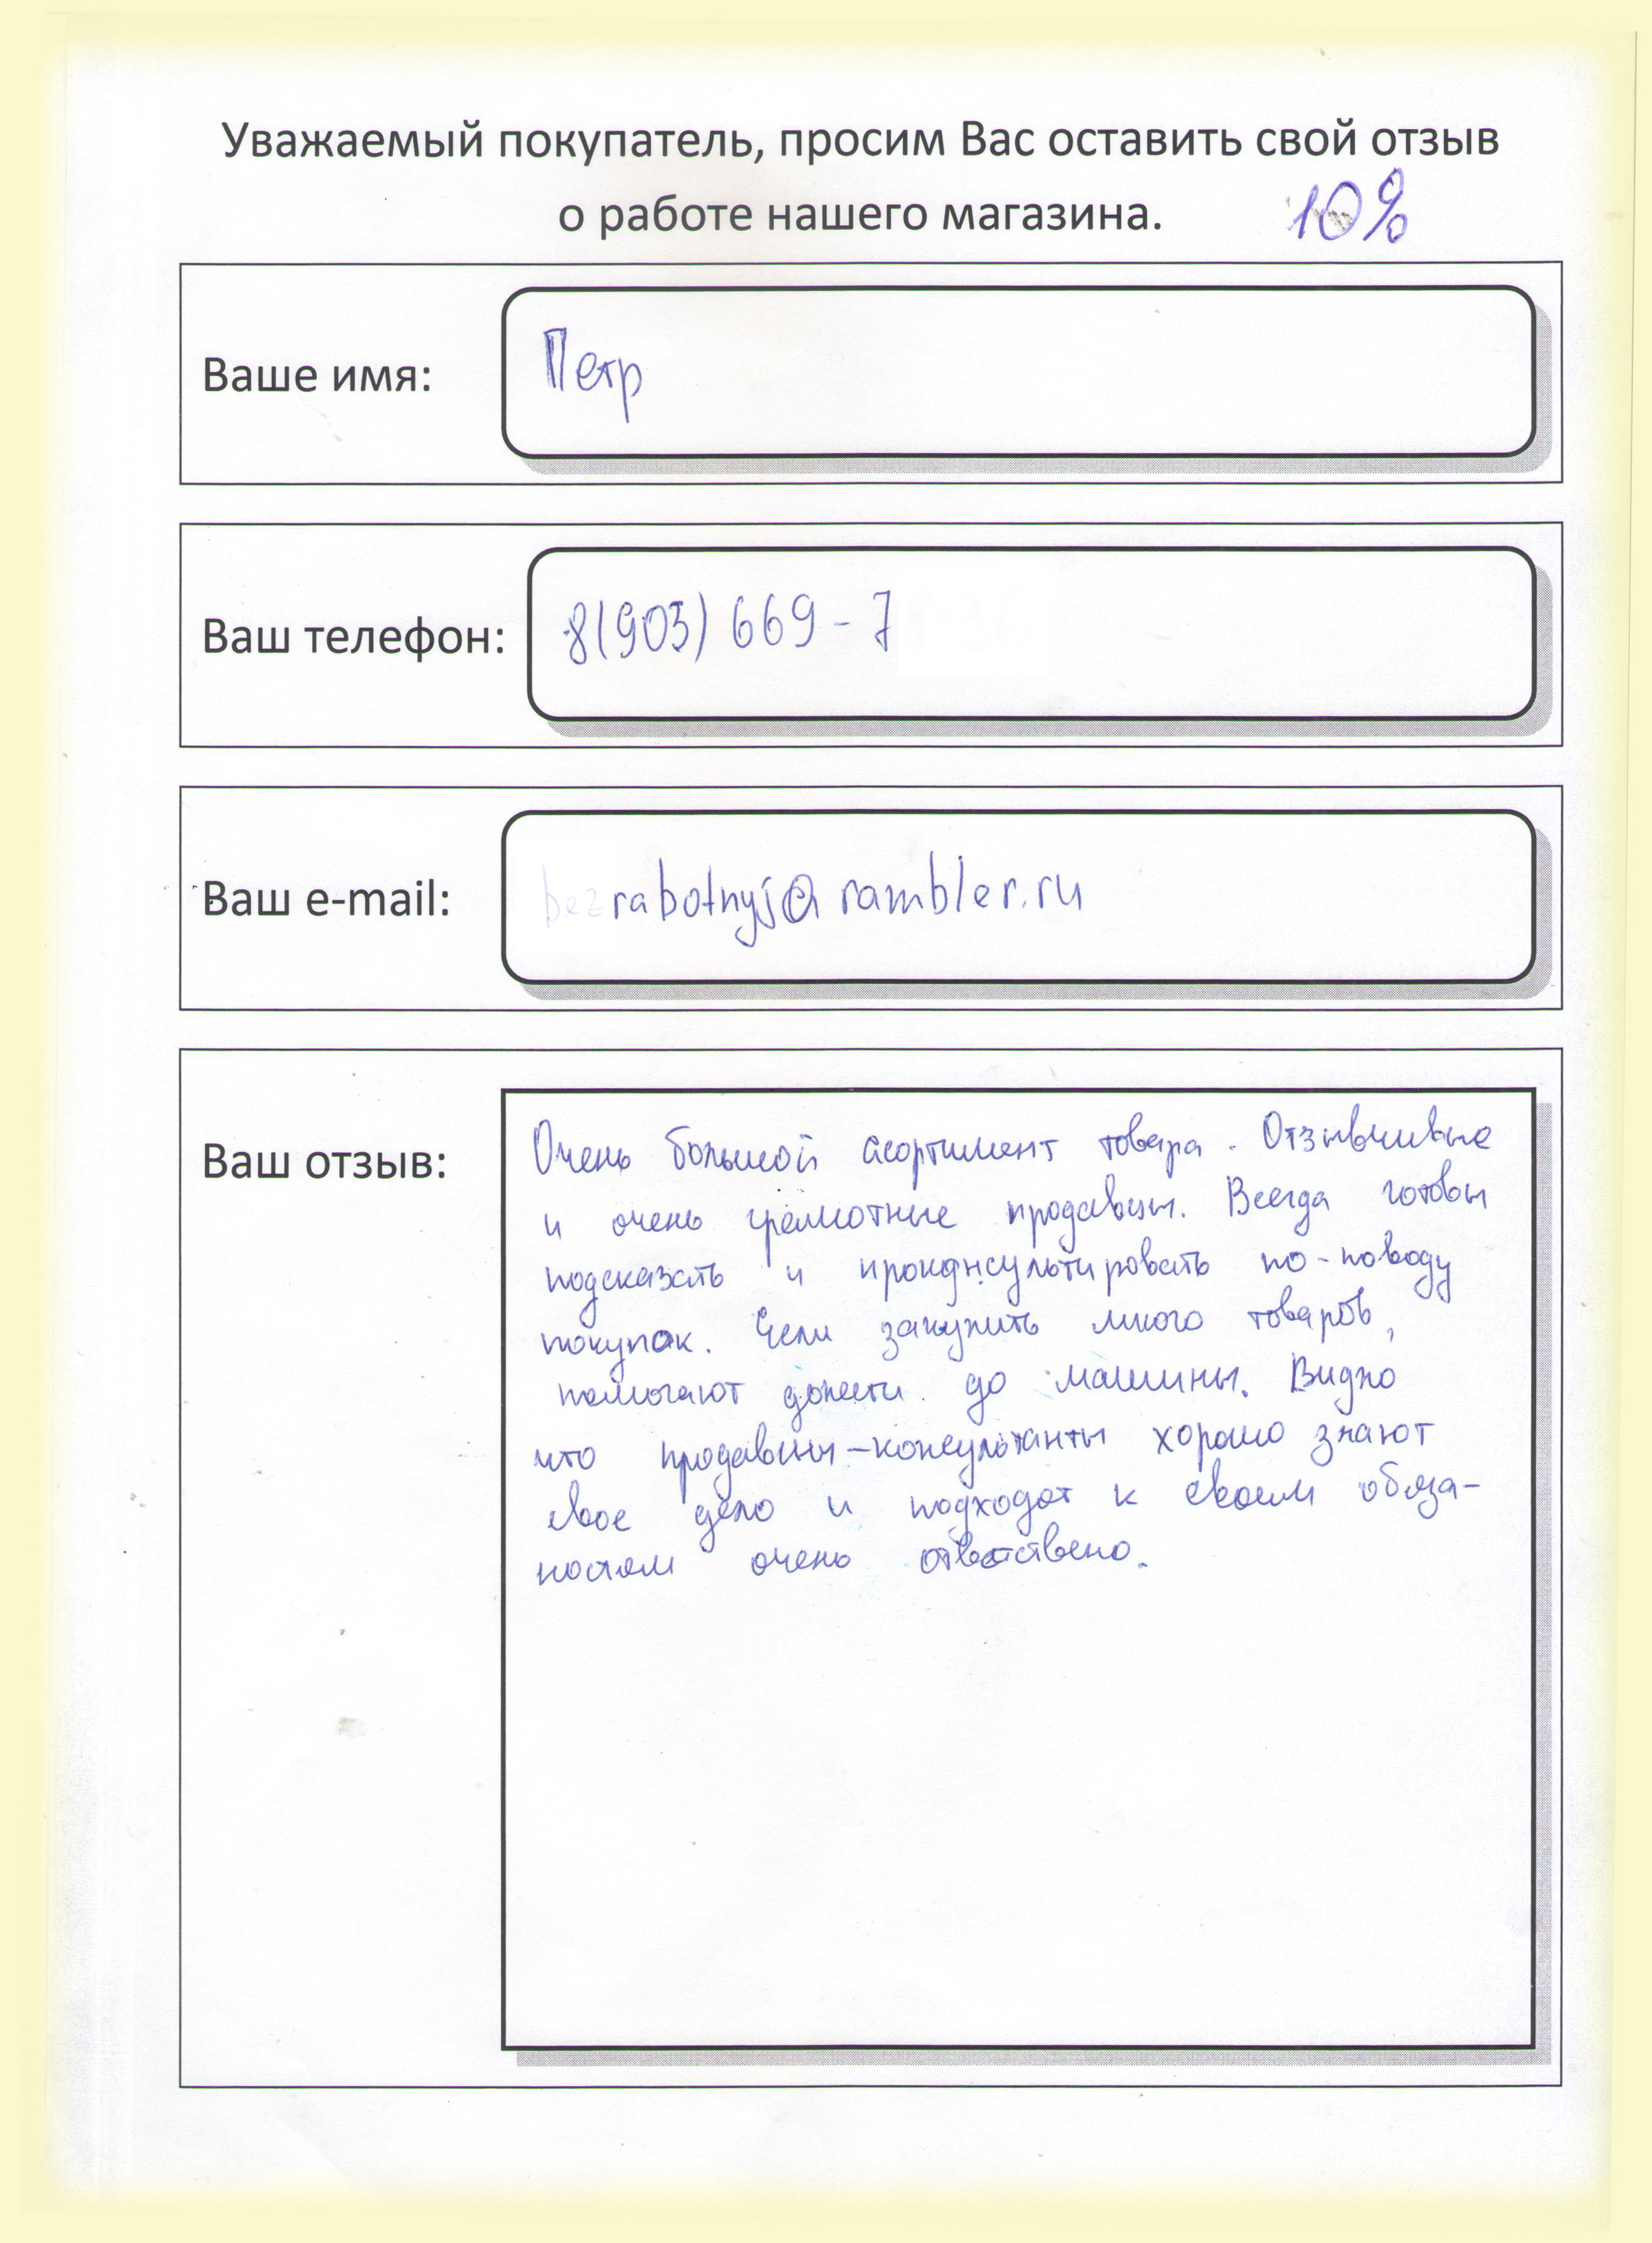 Уважаемый покупатель, просим Вас оставить свой отзыв
о работе нашего магазина.
10%
Ваше имя:
Петр
Ваш телефон:
8(903) 669-7
Ваш e-mail:
bezrabotnyj@rambler.ru
Ваш отзыв:
Очень большой асортимент товара. Отзывчивые
и очень грамотные продавцы. Всегда готовы
подсказать и проконсультировать по-поводу
покупок. Если закупить много товаров,
помогают донести до машины. Видно
что продавцы-консультанты хорошо знают
свое дело и подходят к своим обяза-
ностям очень ответствено.